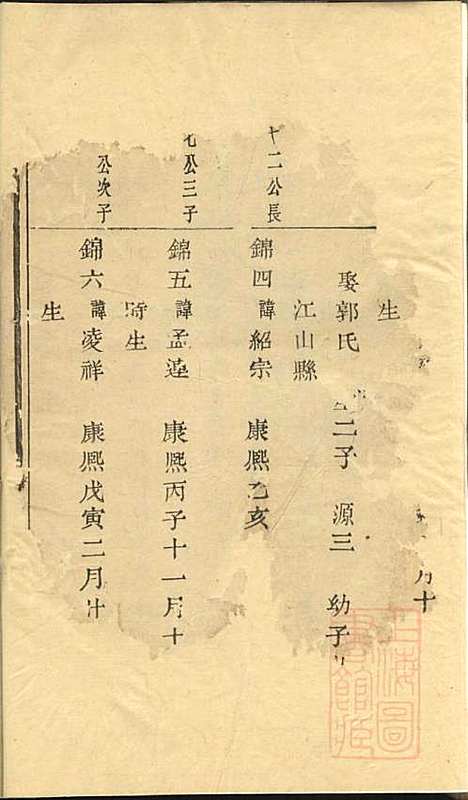 月十
生
娶郭氏 二子 源三 幼子
江山縣
十二公長
錦四 諱紹宗 康熙乙亥
七公三子
錦五 諱孟蓮 康熙丙子十一月十
時生
公次子
錦六 諱凌祥 康熙戊寅二月廿
生
上海圖書館藏